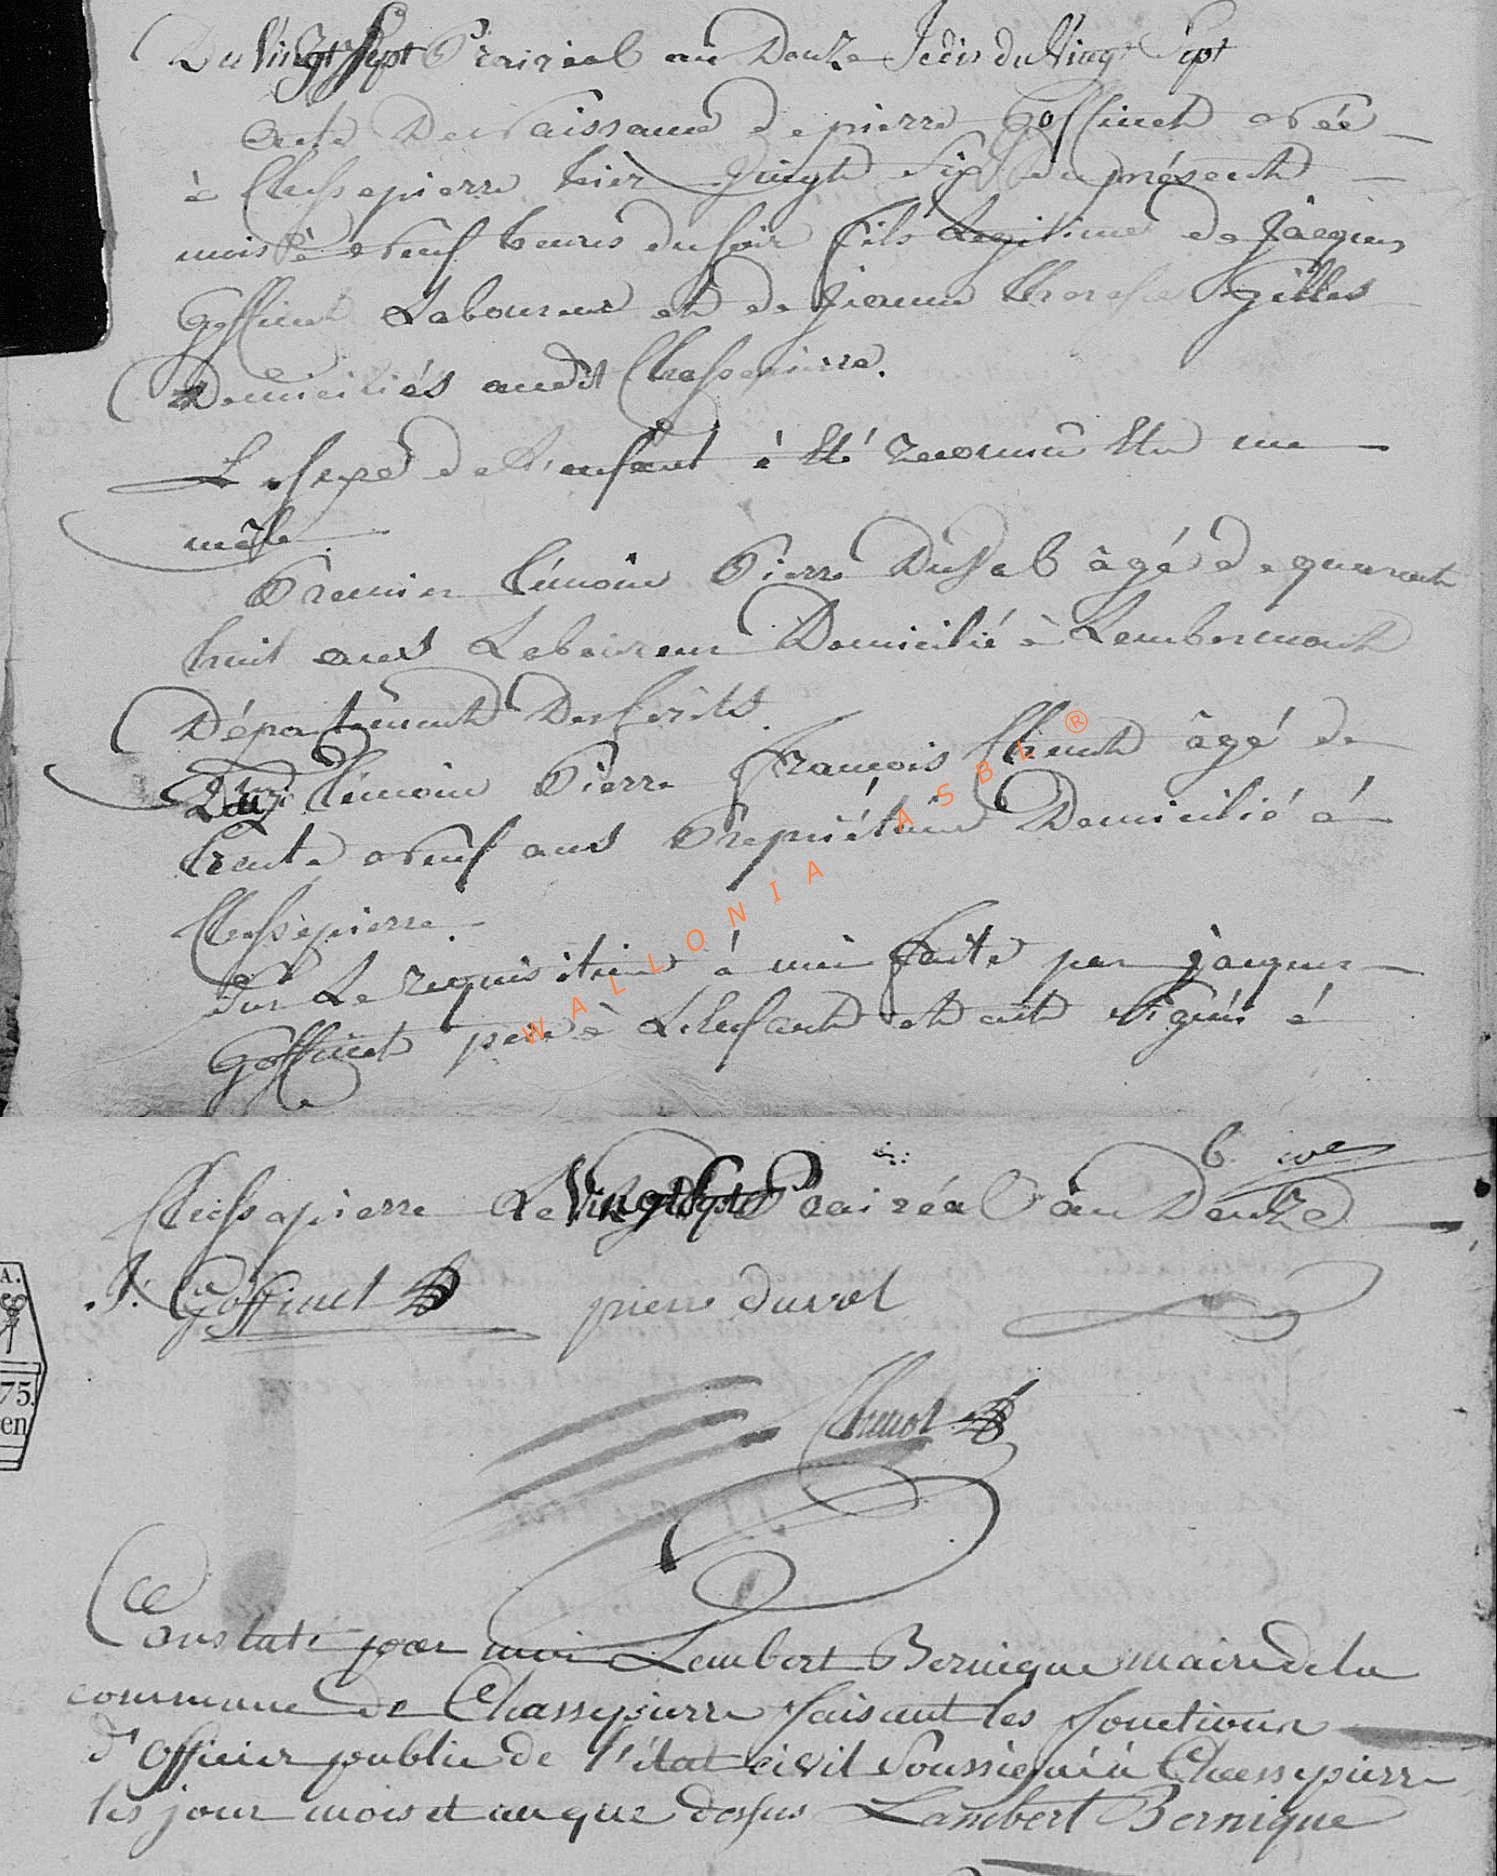 Du Vingt Sept Prairial an Douze Jedis du Vingt Sept
Acte de Naissance de pierre Goffinet Née
à Chassepierre hièr Vingt Six du présent
mois à Neuf heures du soir fils Legitime de Jâcques
Goffinet Laboureur et de Jeanne Therese Gilles
Domiciliés audit Chassepierre.
Le sexe de l'enfant à été reconnu Etre un
mâle.
Premier témoin Pierre Duval âgé de quarante
huit ans Laboureur Domicilié à Lambermont
Département des forêts.
témoin Pierre François Chenot âgé de
trente Neuf ans Propriétaire Domicilié à
Chassepierre.
Sur Le requisition à moi faite par jâcques
Goffinet père à L'enfant et ont Signés à
Chassepierre Le Vingt Sept Prairéal an Douze
J: Goffinet pierre duval
Chenot
Constaté par moi Lambert Bernique maire de la
commune de Chassepierre faisant les fonctions
d'officier public de l'état civil Soussigné à Chassepierre
les jour mois et an que dessus Lambert Bernique
WALLONIA ASBL ®
A.
75.
en